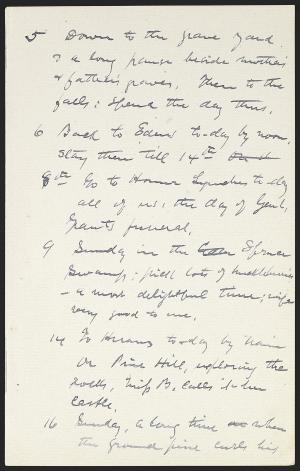 5 Down to the grave yard
& a long pause beside mother's
& father's graves. Then to the
falls; spend the day thus.
6 Back to Eden's to-day by noon,
stay there till 14th
8th Go to Homer Lynches to-day
all of us, the day of Genl.
Grant's funeral.
9 Sunday in the Spruce
Swamp; pick lots of huckleberries
- a most delightful time; wife
very good to me.
14 To Hirams to-day by train
Or Pine Hill, exploring the
rocks, Miss B. calls it her
castle.
16 Sunday, a long time when
the ground pine curls his